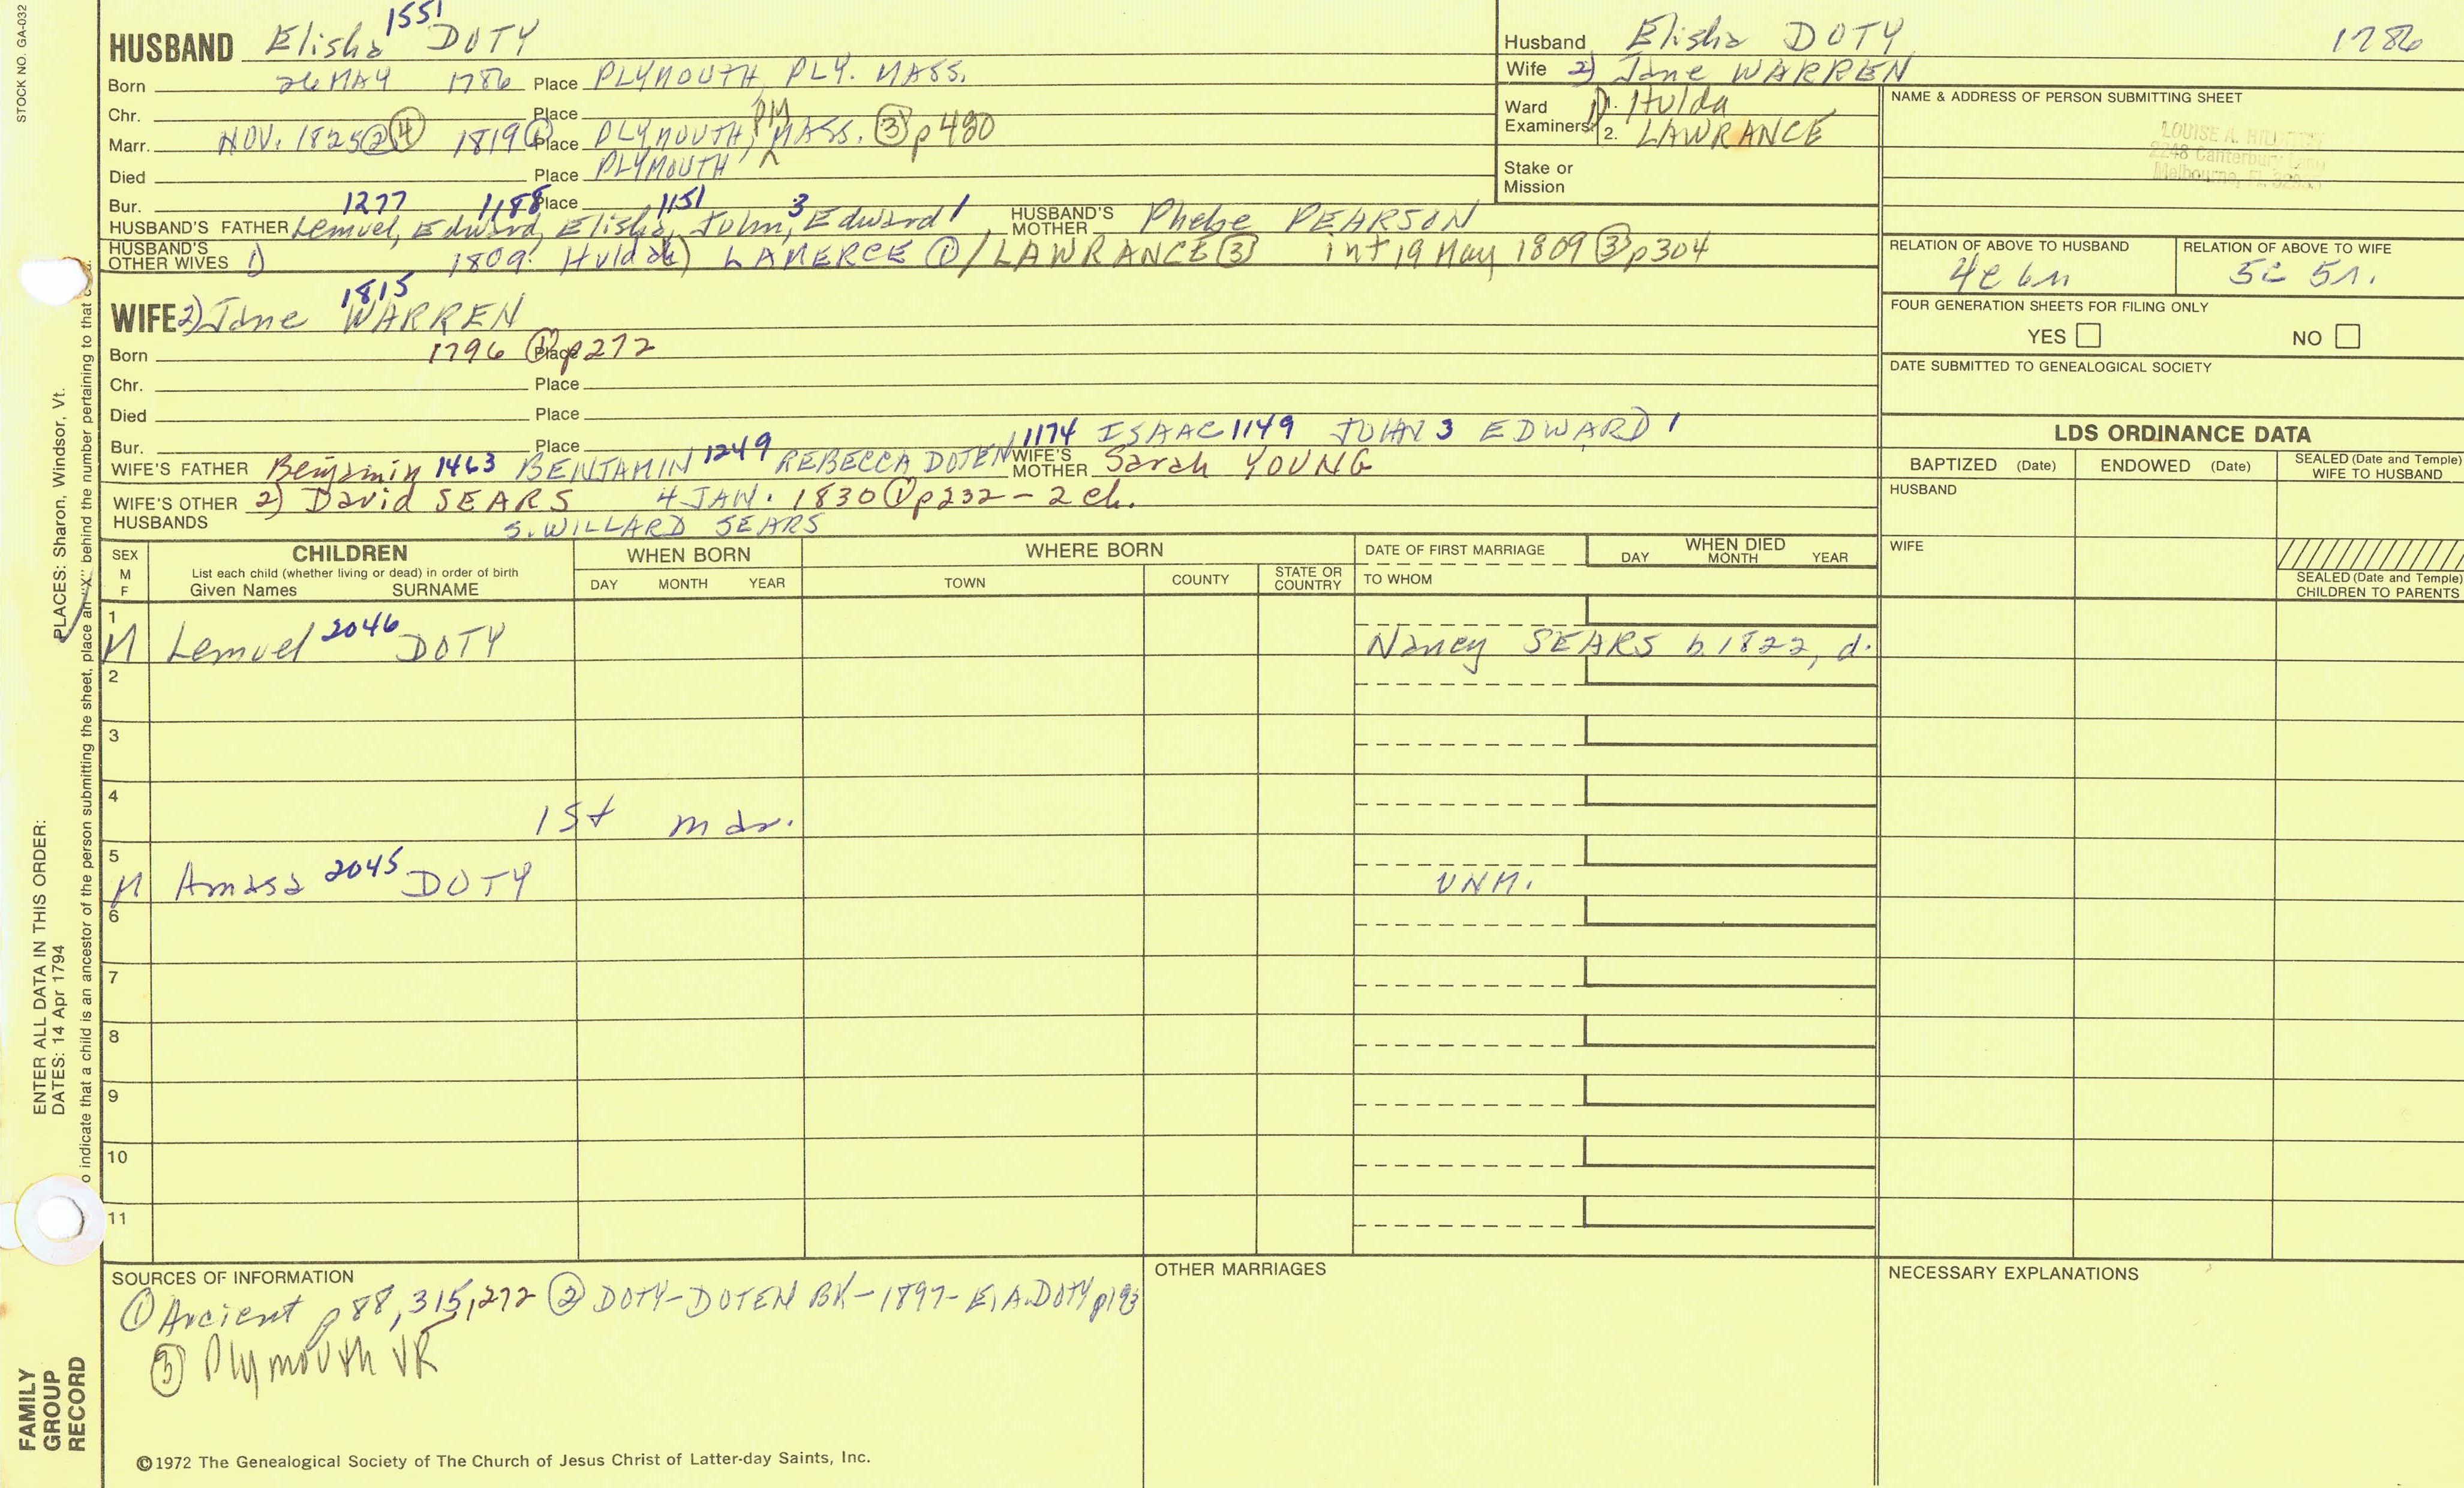 STOCK NO. GA-032
1551
HUSBAND Elisha DOTY
Born 26 MAY 1786 Place PLYMOUTH, PLY. MASS.
Chr. Place
Marr. NOV. 1825 ② ④ 1819 ① Place PLYMOUTH, PLY MASS. ③ p480
Died Place PLYMOUTH
Bur. Place
1277 1188 1151 3 1
HUSBAND'S FATHER Lemuel, Edward, Elisha, John, Edward HUSBAND'S MOTHER Phebe PEARSON
HUSBAND'S OTHER WIVES 1) 1809 Hulda(h) LAMERCE ① / LAWRANCE ③ int 19 May 1809 ③ p304
1815
WIFE 2) Jane WARREN
Born 1796 ① p272 Place
Chr. Place
Died Place
Bur. Place
1174 ISAAC 1149 JOHN 3 EDWARD 1
WIFE'S FATHER Benjamin 1463 BENJAMIN 1249 REBECCA DOTEN WIFE'S MOTHER Sarah YOUNG
WIFE'S OTHER HUSBANDS 2) David SEARS 4 JAN. 1830 ① p232 - 2 ch.
S. WILLARD SEARS
Husband Elisha DOTY 1786
Wife 2) Jane WARREN
Ward Examiners: 1) 1. Hulda
2. LAWRANCE
Stake or Mission
NAME & ADDRESS OF PERSON SUBMITTING SHEET
LOUISE A.
2248 Canterbury Lane
Melbourne, FL
RELATION OF ABOVE TO HUSBAND RELATION OF ABOVE TO WIFE
4c 6r 5c 5r.
FOUR GENERATION SHEETS FOR FILING ONLY
YES NO
DATE SUBMITTED TO GENEALOGICAL SOCIETY
LDS ORDINANCE DATA
BAPTIZED (Date) ENDOWED (Date) SEALED (Date and Temple) WIFE TO HUSBAND
HUSBAND
WIFE
SEALED (Date and Temple) CHILDREN TO PARENTS
SEX M F CHILDREN WHEN BORN WHERE BORN DATE OF FIRST MARRIAGE WHEN DIED
List each child (whether living or dead) in order of birth
Given Names SURNAME DAY MONTH YEAR TOWN COUNTY STATE OR COUNTRY TO WHOM DAY MONTH YEAR
1
M Lemuel 2046 DOTY Nancy SEARS b. 1822, d.
2
3
4
1st mar.
5
M Amasa 2045 DOTY UNM.
6
7
8
9
10
11
SOURCES OF INFORMATION
① Ancient p 88, 315, 272 ② DOTY-DOTEN BK-1897- E.A. DOTY p193
③ Plymouth VR
OTHER MARRIAGES
NECESSARY EXPLANATIONS
©1972 The Genealogical Society of The Church of Jesus Christ of Latter-day Saints, Inc.
FAMILY GROUP RECORD
ENTER ALL DATA IN THIS ORDER:
DATES: 14 Apr 1794
PLACES: Sharon, Windsor, Vt.
o indicate that a child is an ancestor of the person submitting the sheet, place an "X" behind the number pertaining to that c